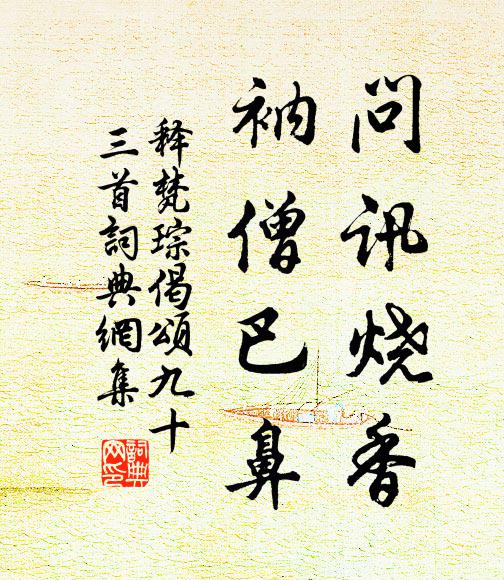 问讯烧香
衲僧巴鼻
释梵琮偈頌九十
三首詞典網集
詞典网印